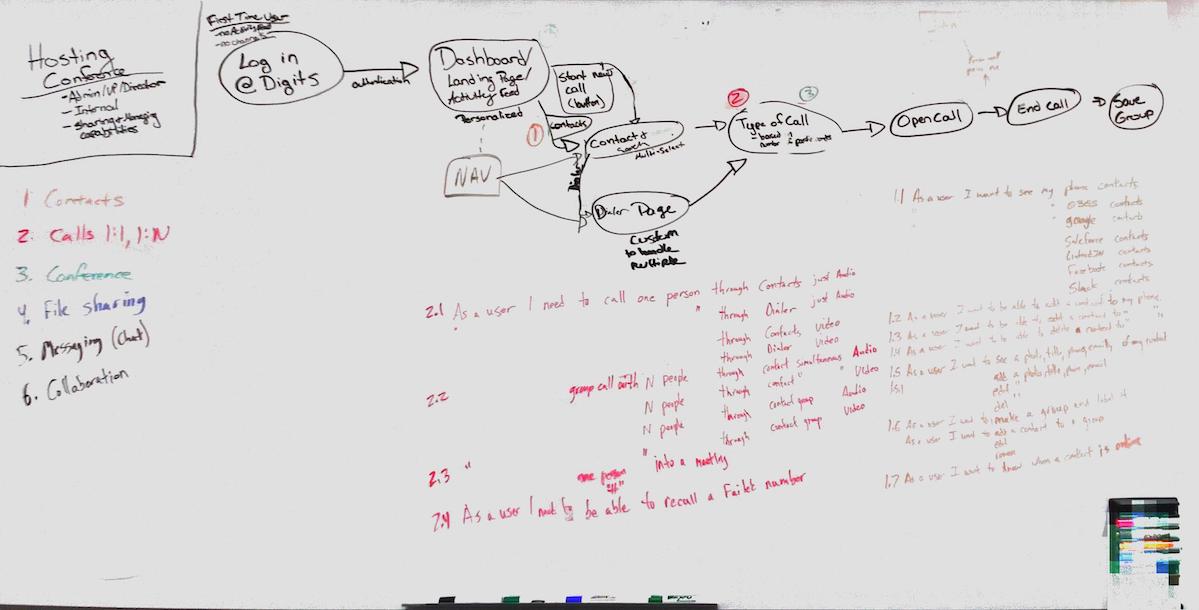 Hosting
Conference
- Admin/VP/Director
- Internal
- Sharing + Managing
capabilities
First Time User
- no Activity Feed
- no channels
Log in
@ Digits
authentication
Dashboard/
Landing Page/
Activity Feed
Personalized
Start new
call
(button)
contacts
1
Contact
search
Multi-Select
NAV
Dialer
Dialer Page
Custom
to handle
multiple
2
3
Type of Call
- based
number
participants
Open Call
End Call
Save
Group
1 Contacts
2. Calls 1:1, 1:N
3. Conference
4. File sharing
5. Messaging (Chat)
6. Collaboration
2.1 As a user I need to call one person through Contacts just Audio
" " through Dialer just Audio
through Contacts Video
through Dialer Video
2.2 group call with N people through contact simultaneous Audio
N people through contact " " Video
N people through contact group Audio
through contact group Video
2.3 " one person " into a meeting
"#"
2.4 As a user I need to be able to recall a Failed number
1.1 As a user I want to see my phone contacts
" O365 contacts
" google contacts
Salesforce contacts
LinkedIn contacts
Facebook contacts
Slack contacts
1.2 As a user I want to be able to add a contact to my phone
1.3 As a user I want to be able to edit a contact to "
1.4 As a user I want to be able to delete a contact to " "
1.5 As a user I want to see a photo, title, phone, email of my contact
1.51 add a photo, title, phone, email
edit "
del
1.6 As a user I want to make a group and label it
As a user I want to add a contact to a group
edit
1.7 As a user I want to know when a contact is online